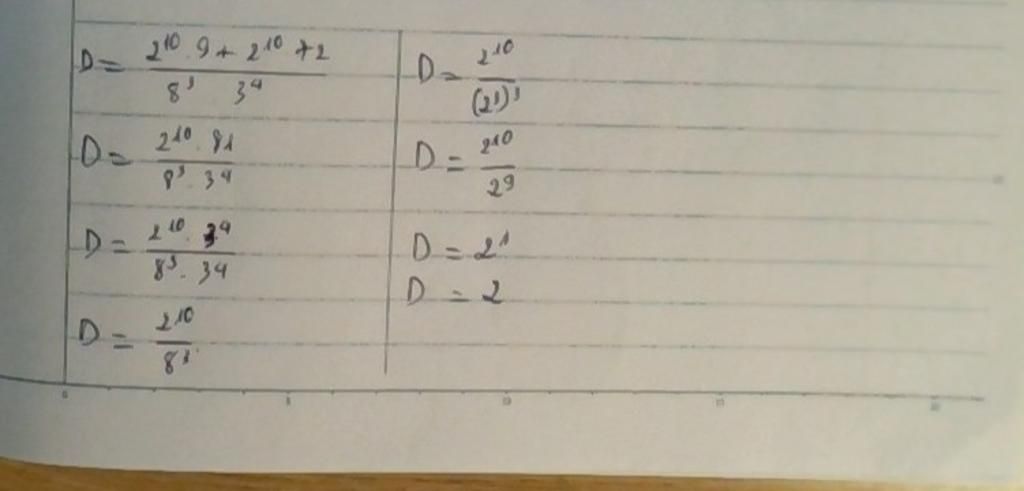 D = 2^10 . 9 + 2^10 + 2 / 8^3 3^4
D = 2^10 . 81 / 8^3 . 3^4
D = 2^10 . 3^4 / 8^3 . 3^4
D = 2^10 / 8^3
D = 2^10 / (2^3)^3
D = 2^10 / 2^9
D = 2^1
D = 2